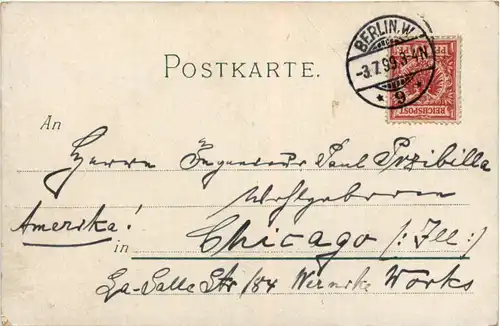 BERLIN. W.
-3.7.99.3-4N
* 9 *
REICHSPOST
POSTKARTE.
An
Herrn Ingenieur Paul Przibilla
Wohlgeboren
Amerika!
in Chicago (: Ill :)
La-Salle Str /84 Wernike Works